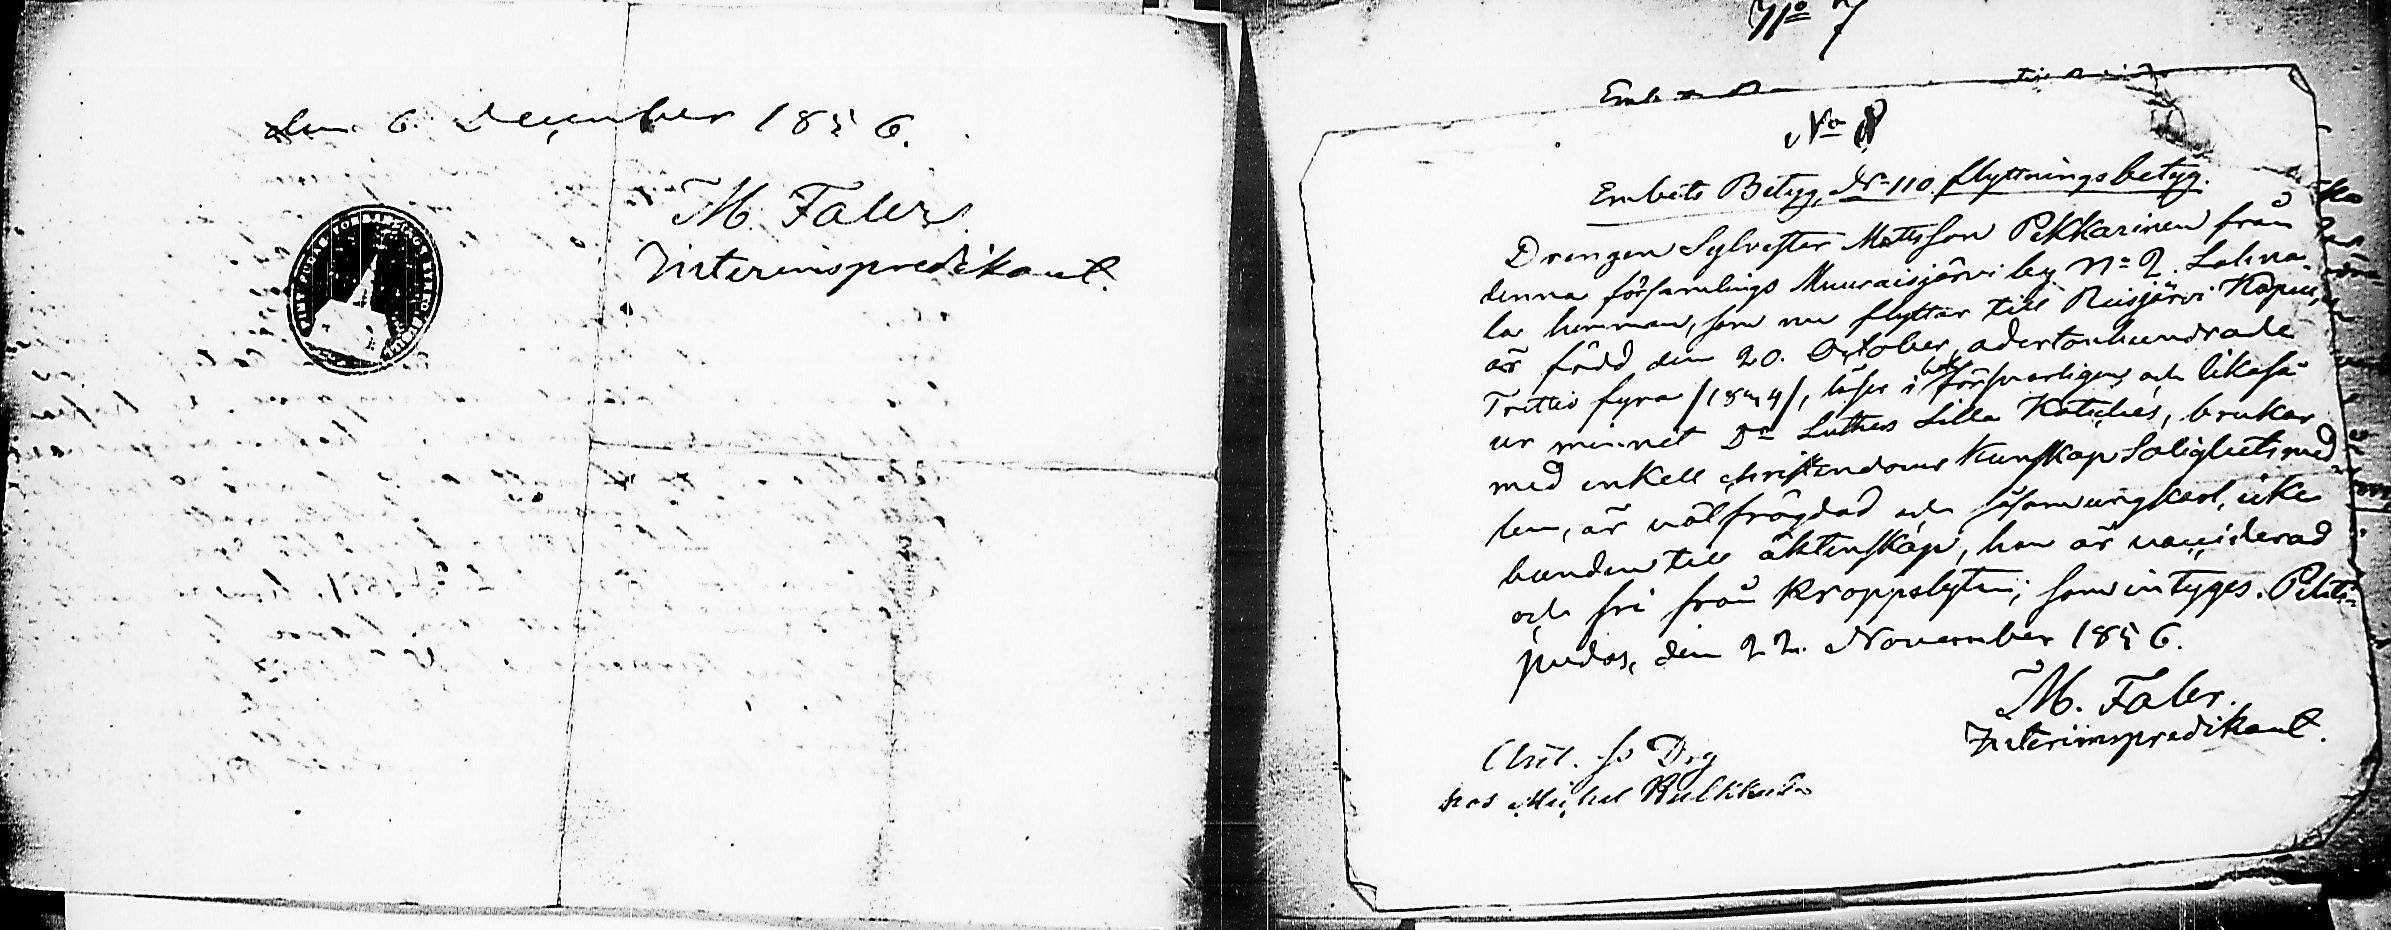 den 6 December 1856.
M. Faler.
Interimspredikant.
No 7
No 8
Embets Betyg, No 110. flyttningsbetyg.
Drengen Sylvester Mattsson Pekkarinen från
denna församlings Muuraisjärvi by No 2. Lahna-
la hemman, som nu flyttar till Reisjärvi Kapell,
är född den 20. October adertonhundrade
Trettio fyra /1834/, läser i bok försvarligen och likaså
ur minnet Dr Luthers Lilla Kateches, brukar
med enkell christendoms kunskap Salighetsmed-
len, är välfrägdad och såsom ungkarl, icke
bunden till äktenskap, han är vaccinerad
och fri från kroppslyten; som intygas. Pihti-
pudas, den 22. November 1856.
M. Faler.
Interimspredikant.
Drg
hos Michel